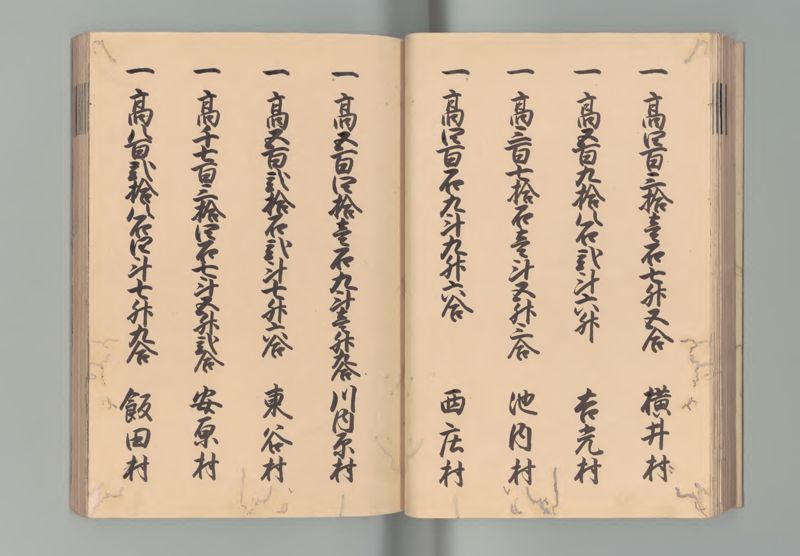 一 高四百三拾壱石七升五合 横井村
一 高五百九拾八石弐斗六升 吉光村
一 高三百七拾石壱斗五升三合 池内村
一 高四百石九斗九升六合 西庄村
一 高五百四拾壱石九斗壱升九合 川内原村
一 高五百弐拾石弐斗七升六合 東谷村
一 高千七百三拾四石七斗五升弐合 安原村
一 高八百弐拾八石四斗七升九合 飯田村